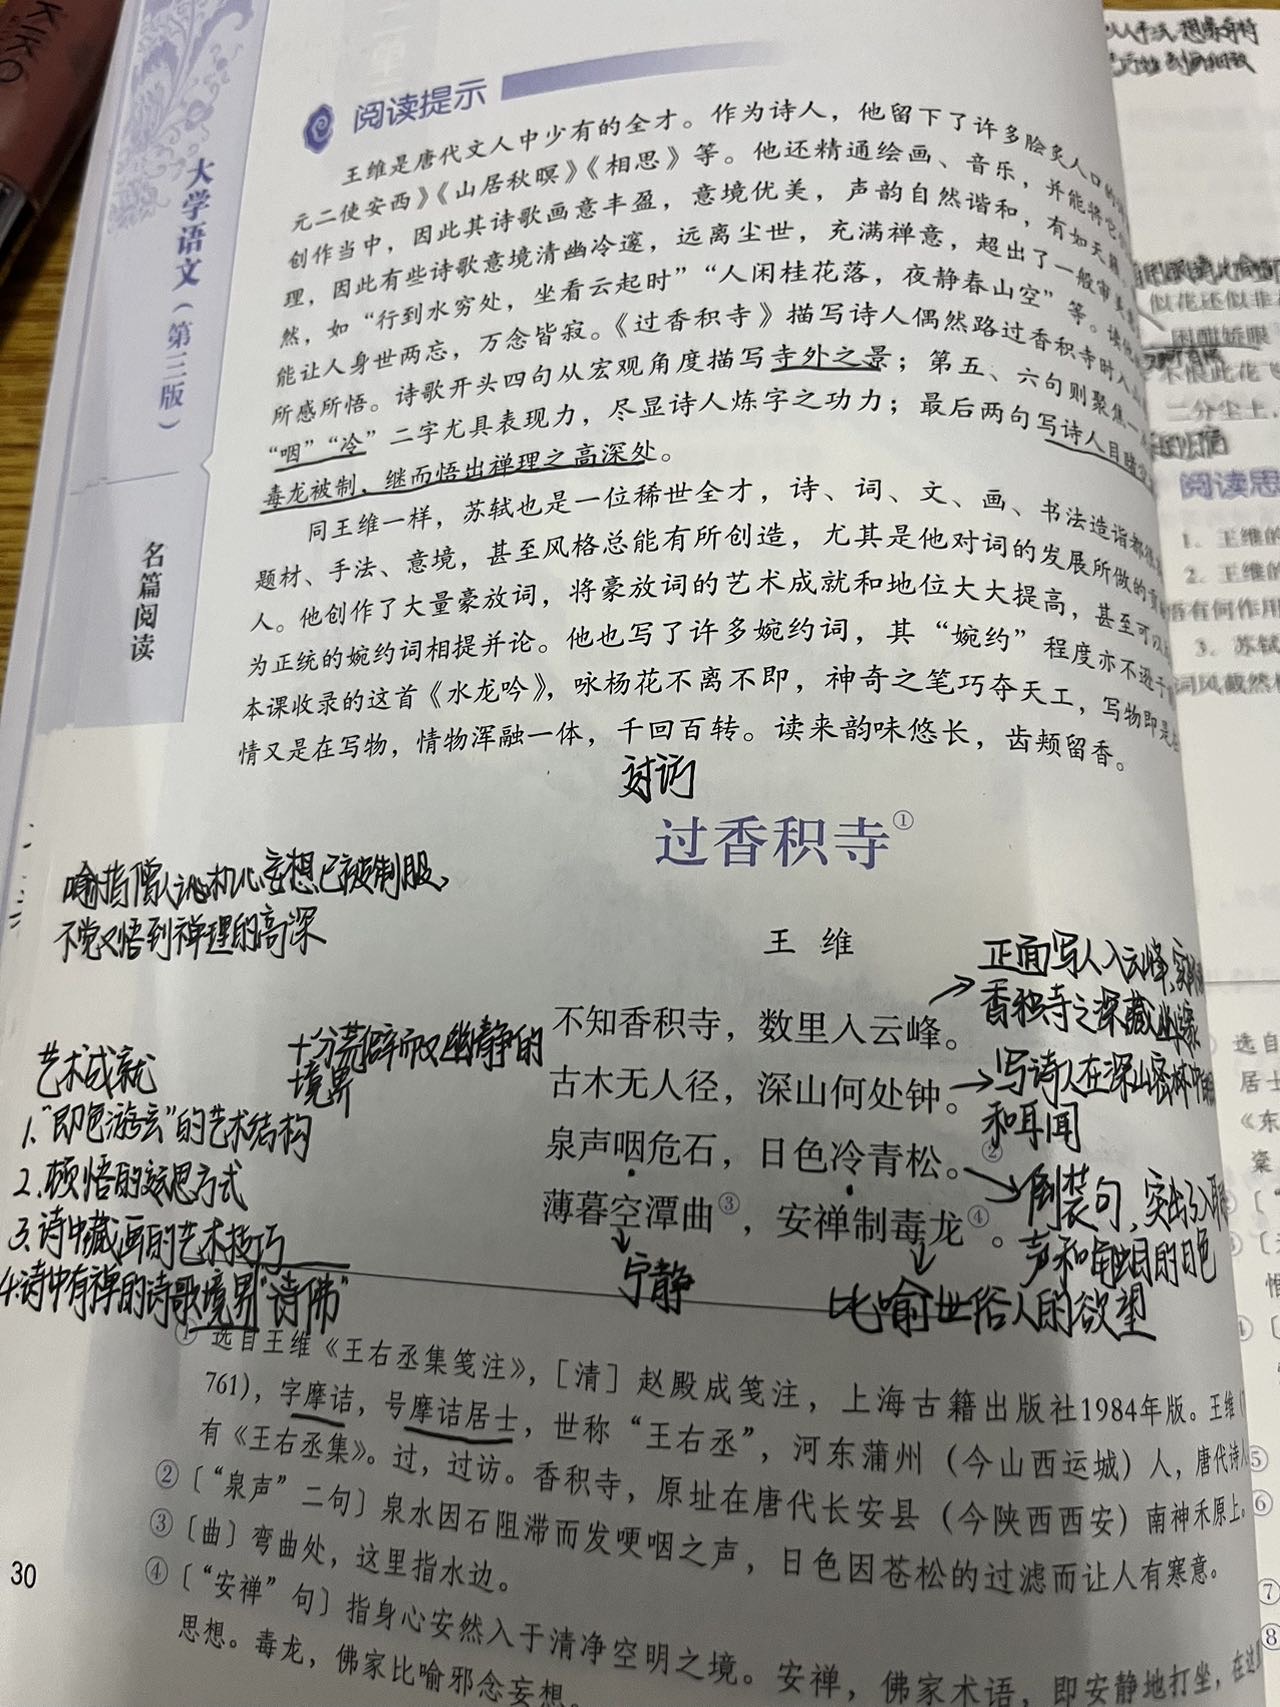 KIKO
大学语文（第三版）
名篇阅读
阅读提示
王维是唐代文人中少有的全才。作为诗人，他留下了许多脍炙人口的
元二使安西》《山居秋暝》《相思》等。他还精通绘画、音乐，并能将它
创作当中，因此其诗歌画意丰盈，意境优美，声韵自然谐和，有如天籁
理，因此有些诗歌意境清幽冷邃，远离尘世，充满禅意，超出了一般审美
然，如“行到水穷处，坐看云起时”“人闲桂花落，夜静春山空”等。读
能让人身世两忘，万念皆寂。《过香积寺》描写诗人偶然路过香积寺时入山
所感所悟。诗歌开头四句从宏观角度描写寺外之景；第五、六句则聚焦
“咽”“冷”二字尤具表现力，尽显诗人炼字之功力；最后两句写诗人目睹
毒龙被制，继而悟出禅理之高深处。
同王维一样，苏轼也是一位稀世全才，诗、词、文、画、书法造诣都
题材、手法、意境，甚至风格总能有所创造，尤其是他对词的发展所做的贡
人。他创作了大量豪放词，将豪放词的艺术成就和地位大大提高，甚至可以
为正统的婉约词相提并论。他也写了许多婉约词，其“婉约”程度亦不逊于
本课收录的这首《水龙吟》，咏杨花不离不即，神奇之笔巧夺天工，写物即是
情又是在写物，情物浑融一体，千回百转。读来韵味悠长，齿颊留香。
过香积寺①
喻指僧人 妄想已被制服，
不觉又悟到禅理的高深
王维
不知香积寺，数里入云峰。
正面写人入云峰，
香积寺之深藏幽邃
古木无人径，深山何处钟。
写诗人在深山密林中的
和耳闻
泉声咽危石，日色冷青松。②
倒装句，突出
声和 目的日色
薄暮空潭曲③，安禅制毒龙④。
宁静
比喻世俗人的欲望
十分荒僻而又幽静的
境界
艺术成就
1.“即色游玄”的艺术结构
2.顿悟的 思方式
3.诗中藏画的艺术技巧
4.诗中有禅的诗歌境界“诗佛”
① 选自王维《王右丞集笺注》，［清］赵殿成笺注，上海古籍出版社1984年版。王维（
761），字摩诘，号摩诘居士，世称“王右丞”，河东蒲州（今山西运城）人，唐代诗人
有《王右丞集》。过，过访。香积寺，原址在唐代长安县（今陕西西安）南神禾原上。
②〔“泉声”二句〕泉水因石阻滞而发哽咽之声，日色因苍松的过滤而让人有寒意。
③〔曲〕弯曲处，这里指水边。
④〔“安禅”句〕指身心安然入于清净空明之境。安禅，佛家术语，即安静地打坐，在这
思想。毒龙，佛家比喻邪念妄想。
30
似花还似非
困酣娇眼
不恨此花飞
二分尘上，
阅读思
1. 王维的
2. 王维的
语有何作用
3. 苏轼
词风截然
选自
居士
《东
⑤
⑥
⑦
⑧